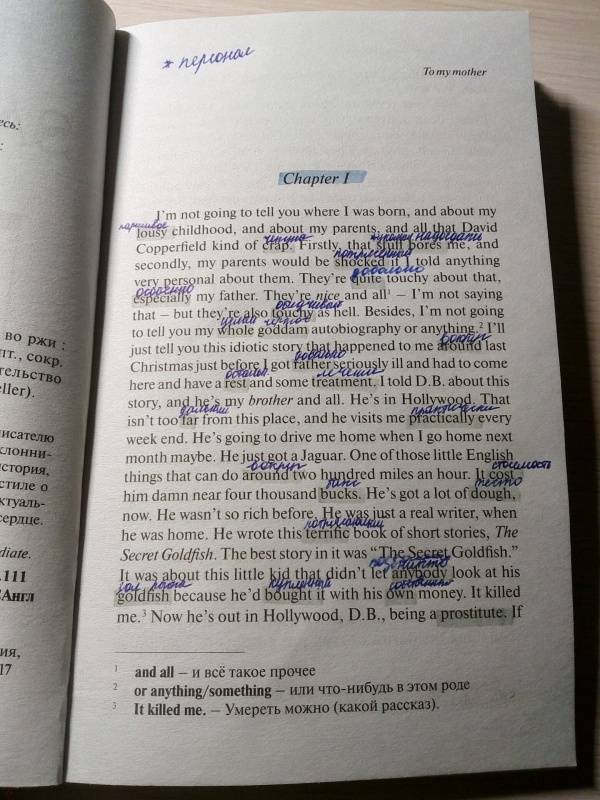 * персонал
To my mother
есь:
:
Chapter I
I'm not going to tell you where I was born, and about my
паршивое
lousy childhood, and about my parents, and all that David
чепуха
надоедать
Copperfield kind of crap. Firstly, that stuff bores me, and
потрясенный
secondly, my parents would be shocked if I told anything
довольно
very personal about them. They're quite touchy about that,
особенно
especially my father. They're nice and all¹ – I'm not saying
обидчивый
that – but they're also touchy as hell. Besides, I'm not going
целый
to tell you my whole goddam autobiography or anything.² I'll
вокруг
just tell you this idiotic story that happened to me around last
довольно
Christmas just before I got rather seriously ill and had to come
лечения
here and have a rest and some treatment. I told D.B. about this
story, and he's my brother and all. He's in Hollywood. That
далекий
практически
isn't too far from this place, and he visits me practically every
week end. He's going to drive me home when I go home next
month maybe. He just got a Jaguar. One of those little English
вокруг
стоимость
things that can do around two hundred miles an hour. It cost
бакс
тесто
him damn near four thousand bucks. He's got a lot of dough,
now. He wasn't so rich before. He was just a real writer, when
потрясающий
he was home. He wrote this terrific book of short stories, The
Secret Goldfish. The best story in it was "The Secret Goldfish."
It was about this little kid that didn't let anybody look at his
купленный
goldfish because he'd bought it with his own money. It killed
me.³ Now he's out in Hollywood, D.B., being a prostitute. If
во ржи :
пт., сокр.
тельство
eller).
исателю
клонни-
стория,
стиле о
ктуаль-
сердце.
diate.
.111
Англ
ия,
17
¹ and all – и всё такое прочее
² or anything/something – или что-нибудь в этом роде
³ It killed me. – Умереть можно (какой рассказ).